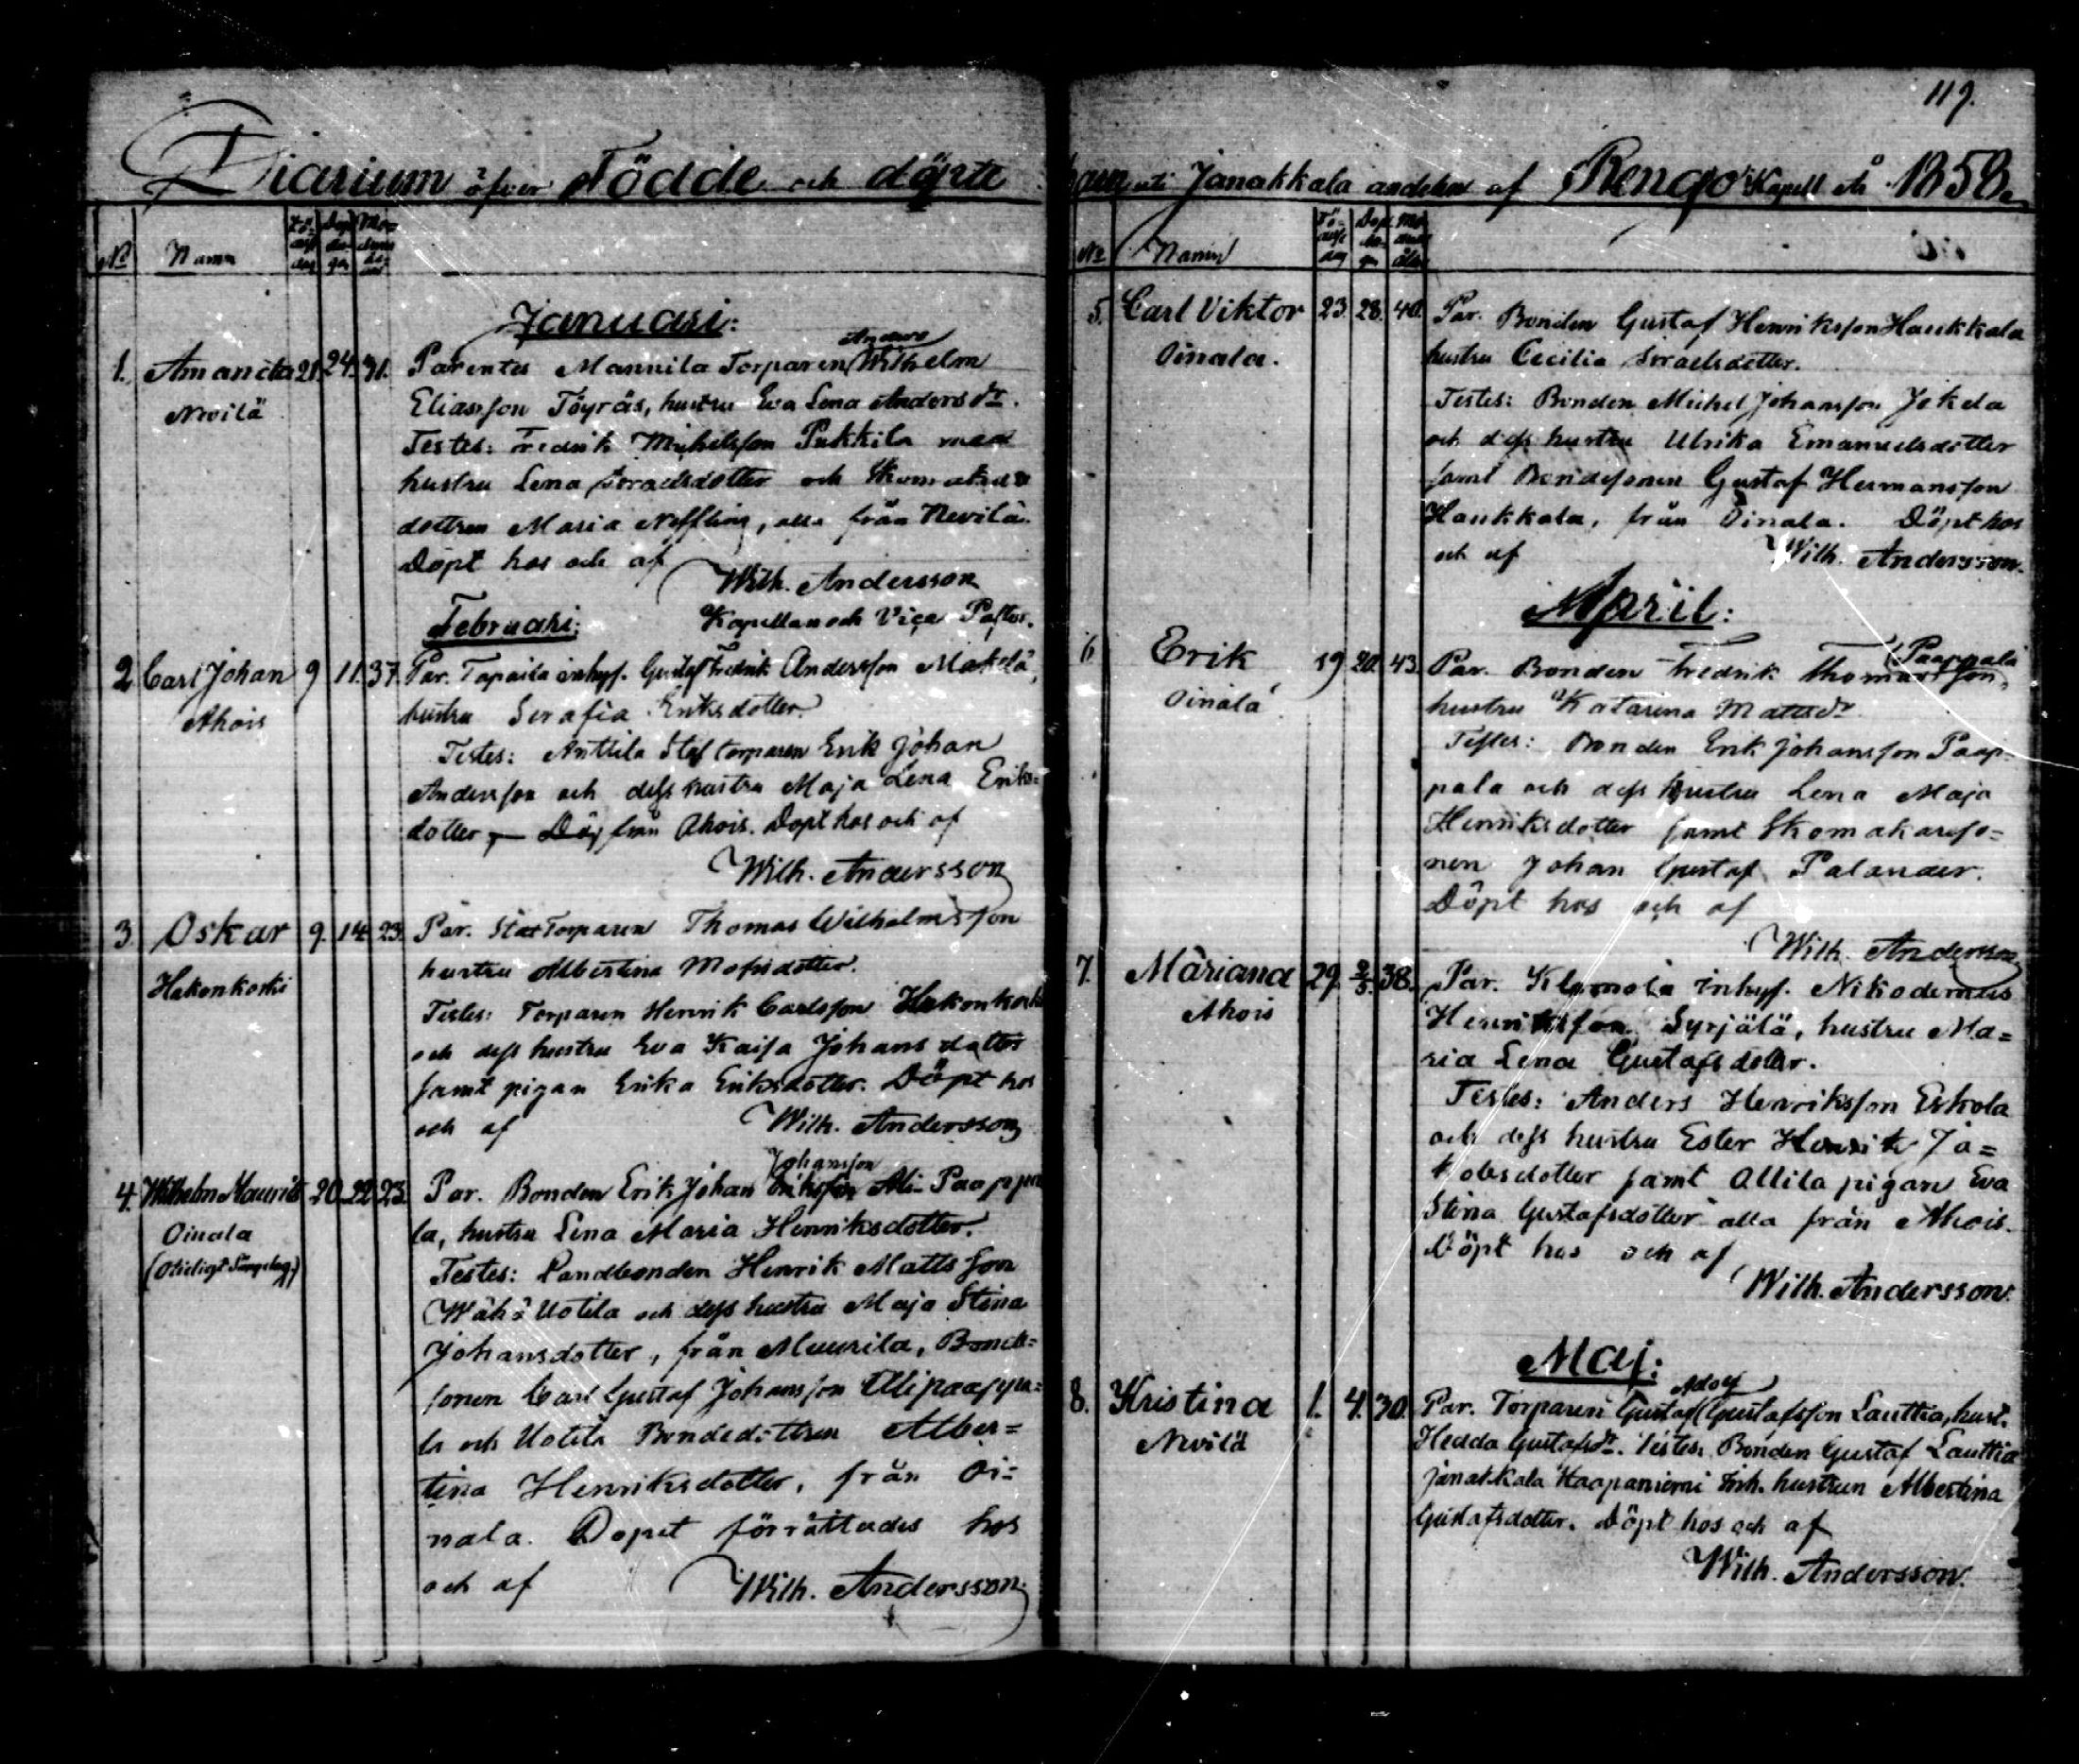 119.
Diarium öfver Födde och döpte
barn uti Janakkala andelen af Rengo Kapell År 1858.
No Namn Fö-delse dag Dop da-gen Mo-drens ål-der
Januari:
1. Amanda 21. 24. 31. Parentes Mannila Torparen Anders Wilhelm
Nevilä Eliasson Töyräs, hustru Eva Lena Anders dr.
Testes: Fredrik Michelsson Pukkila med
hustru Lena Israelsdotter och Skomakare
dottren Maria Neffling, alla från Nevilä.
Döpt hos och af
Wilh. Andersson
Kapellan och Vice Pastor.
Februari:
2 Carl Johan 9 11. 37. Par. Tapaila inhys. Gustaf Fredrik Andersson Mäkelä,
Ahois hustru Serafia Eriksdotter.
Testes: Anttila Stattorparen Erik Johan
Andersson och dess hustru Maja Lena Eriks=
dotter, Döp från Ahois. Döpt hos och af
Wilh. Andersson
3. Oskar 9. 14. 23. Par. StatTorparen Thomas Wilhelmsson
Hakonkoski hustru Albertina Mosisdotter.
Testes: Torparen Henrik Carlsson Hakonkoski
och dess hustru Eva Kaisa Johansdotter
samt pigan Erika Eriksdotter. Döpt hos
och af Wilh. Andersson
4. Wilhelm Maurits 20. 22. 23. Par. Bonden Erik Johan Eriksson Johansson Ali-Paappa
Oinala la, hustru Lena Maria Henriksdotter.
(Otidigt Sängelag) Testes: Landbonden Henrik Mattsson
Wähä Uotila och dess hustru Maja Stina
Johansdotter, från Muurila, Bonde=
sonen Carl Gustaf Johansson Alipaappa=
la och Uotila Bondedottren Alber=
tina Henriksdotter, från Oi=
nala. Dopet förrättades hos
och af Wilh. Andersson
No Namn Fö-delse dag Dop da-gen Mo-drens ålder
5. Carl Viktor 23. 28. 40. Par. Bonden Gustaf Henriksson Haukkala
Oinala. hustru Cecilia Israelsdotter.
Testes: Bonden Michel Johansson Jokela
och dess hustru Ulrika Emanuelsdotter
samt Bondesonen Gustaf Hermansson
Haukkala, från Oinala. Döpt hos
och af Wilh. Andersson.
April:
6 Erik 19 20. 43. Par. Bonden Fredrik Thomasson Paappala,
Oinala hustru Katarina Matts dr
Testes: Bonden Erik Johansson Paap=
pala och dess hustru Lena Maja
Henriksdotter samt Skomakareso=
nen Johan Gustaf Palander.
Döpt hos och af
Wilh. Andersson
7. Mariana 29. 2/5. 38. Par. Klemola inhys. Nikodemus
Ahois Henriksson Syrjälä, hustru Ma=
ria Lena Gustafsdotter.
Testes: Anders Henriksson Eskola
och dess hustru Ester Henrik Ja=
kobsdotter samt Ollila pigan Eva
Stina Gustafsdotter alla från Ahois.
Döpt hos och af
Wilh. Andersson.
Maj:
8. Kristina 1. 4. 30. Par. Torparen Gustaf Adolf Gustafsson Lauttia, hust.
Nevilä Hedda Gustafs dr. Testes: Bonden Gustaf Lauttia
Janakkala Haapaniemi Inh. hustrun Albertina
Gustafsdotter. Döpt hos och af
Wilh. Andersson.